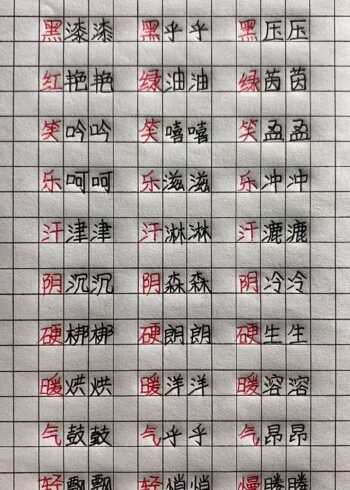 黑漆漆 黑乎乎 黑压压
红艳艳 绿油油 绿茵茵
笑吟吟 笑嘻嘻 笑盈盈
乐呵呵 乐滋滋 乐冲冲
汗津津 汗淋淋 汗漉漉
阴沉沉 阴森森 阴冷冷
硬梆梆 硬朗朗 硬生生
暖烘烘 暖洋洋 暖溶溶
气鼓鼓 气乎乎 气昂昂
轻飘飘 轻悄悄 慢腾腾